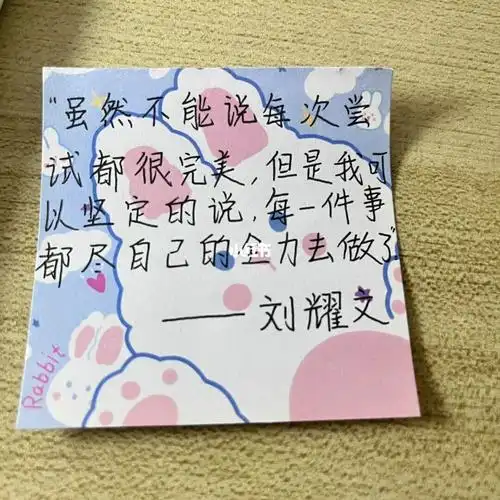 “虽然不能说每次尝
试都很完美,但是我可
以坚定的说,每一件事
都尽自己的全力去做了”
——刘耀文
Rabbit
小红书